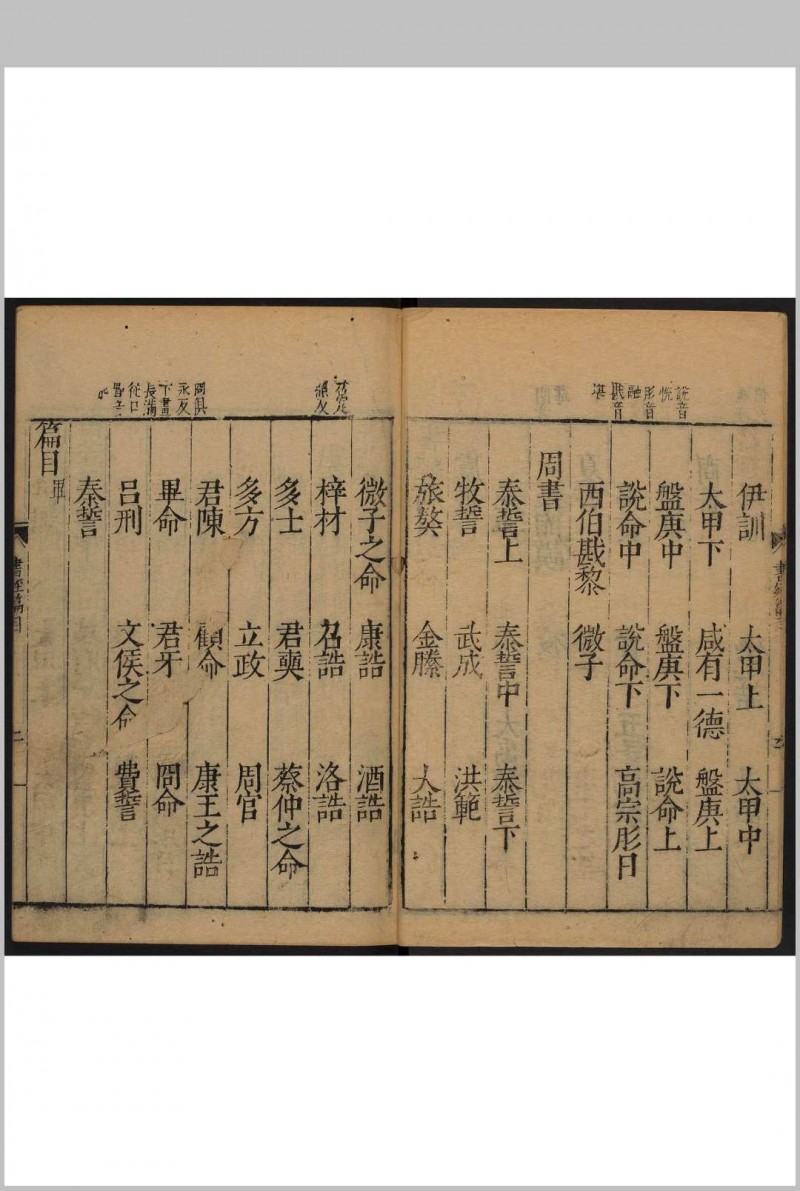 說音
悅
肜音
融
戡音
堪
伊訓　太甲上　太甲中
太甲下　咸有一德　盤庚上
盤庚中　盤庚下　說命上
說命中　說命下　高宗肜日
西伯戡黎　微子
周書
泰誓上　泰誓中　泰誓下
牧誓　武成　洪範
旅獒　金縢　大誥
微子之命　康誥　酒誥
梓材　召誥　洛誥
多士　君奭　蔡仲之命
多方　立政　周官
君陳　顧命　康王之誥
畢命　君牙　冏命
呂刑　文侯之命　費誓
秦誓
篇目畢
冏俱
永反
下畫
長滿
從口
書經篇目
二